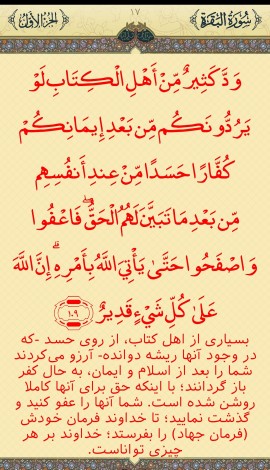 سُورَةُ البَقَرَةِ
١٧
الجُزءُ الأوَّلُ
وَدَّ كَثِيرٌ مِّنْ أَهْلِ الْكِتَابِ لَوْ
يَرُدُّونَكُم مِّن بَعْدِ إِيمَانِكُمْ
كُفَّارًا حَسَدًا مِّنْ عِندِ أَنفُسِهِم
مِّن بَعْدِ مَا تَبَيَّنَ لَهُمُ الْحَقُّ ۖ فَاعْفُوا
وَاصْفَحُوا حَتَّىٰ يَأْتِيَ اللَّهُ بِأَمْرِهِ ۗ إِنَّ اللَّهَ
عَلَىٰ كُلِّ شَيْءٍ قَدِيرٌ ١٠٩
بسیاری از اهل کتاب، از روی حسد -که
در وجود آنها ریشه دوانده- آرزو می‌کردند
شما را بعد از اسلام و ایمان، به حال کفر
باز گردانند؛ با اینکه حق برای آنها کاملا
روشن شده است. شما آنها را عفو کنید و
گذشت نمایید؛ تا خداوند فرمان خودش
(فرمان جهاد) را بفرستد؛ خداوند بر هر
چیزی تواناست.